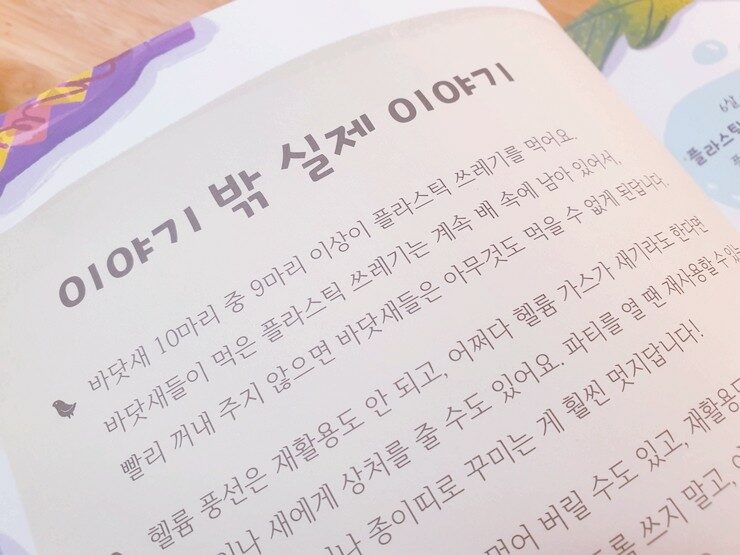 이야기 밖 실제 이야기
바닷새 10마리 중 9마리 이상이 플라스틱 쓰레기를 먹어요.
바닷새들이 먹은 플라스틱 쓰레기는 계속 배 속에 남아 있어서,
빨리 꺼내 주지 않으면 바닷새들은 아무것도 먹을 수 없게 된답니다.
헬륨 풍선은 재활용도 안 되고, 어쩌다 헬륨 가스가 새기라도 한다면
새에게 상처를 줄 수도 있어요. 파티를 열 땐 재사용할 수 있는
종이띠로 꾸미는 게 훨씬 멋지답니다!
먹어 버릴 수도 있고,
쓰지 말고,
6살
플라스틱